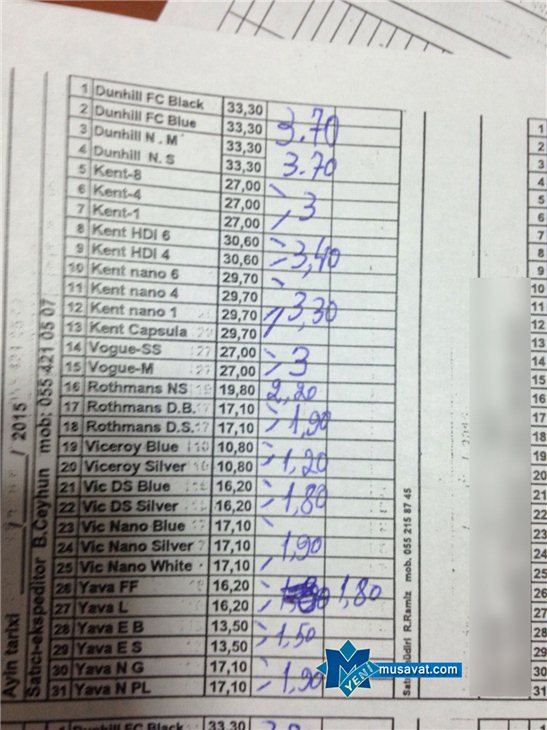 1 Dunhill FC Black 33,30
2 Dunhill FC Blue 33,30 3.70
3 Dunhill N . M 33,30
4 Dunhill N. S 33,30 3.70
5 Kent-8 27,00
6 Kent-4 27,00 3
7 Kent-1 27,00
8 Kent HDI 6 30,60
9 Kent HDI 4 30,60 3,40
10 Kent nano 6 29,70
11 Kent nano 4 29,70 3,30
12 Kent nano 1 29,70
13 Kent Capsula 29,70
14 Vogue-SS 27,00 3
15 Vogue-M 27,00
16 Rothmans NS 19,80 2,20
17 Rothmans D.B. 17,10 1,90
18 Rothmans D.S. 17,10
19 Viceroy Blue 10,80
20 Viceroy Silver 10,80 1,20
21 Vic DS Blue 16,20
22 Vic DS Silver 16,20 1,80
23 Vic Nano Blue 17,10
24 Vic Nano Silver 17,10 1,90
25 Vic Nano White 17,10
26 Yava FF 16,20 1,80
27 Yava L 16,20
28 Yava E B 13,50 1,50
29 Yava E S 13,50
30 Yava N G 17,10
31 Yava N PL 17,10 1,90
Ayin tarixi / / 2015
Satıcı-ekspeditor B.Ceyhun mob: 055 421 05 07
R.Ramiz mob. 055 215 87 45
YENI musavat.com
1
2
3
4
5
6
7
8
9
10
11
12
13
14
15
16
17
18
19
20
21
22
23
24
25
26
27
28
29
30
31
Dunhill FC Black 33,30